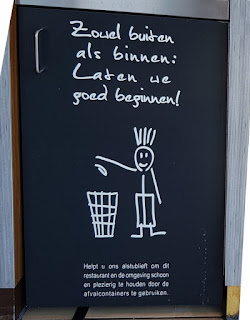 Zowel buiten
als binnen:
Laten we
goed beginnen!
Helpt u ons alstublieft om dit
restaurant en de omgeving schoon
en plezierig te houden door de
afvalcontainers te gebruiken.